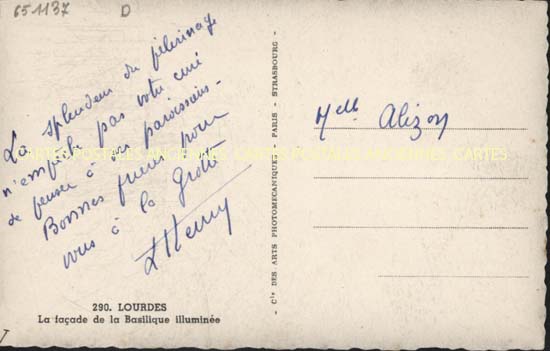 651137 D
La splendeur du pèlerinage
n'empêche pas votre curé
de penser à ses paroissiens.
Bonnes prières pour
vous à la grotte
290. LOURDES
La façade de la Basilique illuminée
Cie DES ARTS PHOTOMECANIQUES - PARIS - STRASBOURG -
Melle Alizon
CARTES POSTALES ANCIENNES CARTES